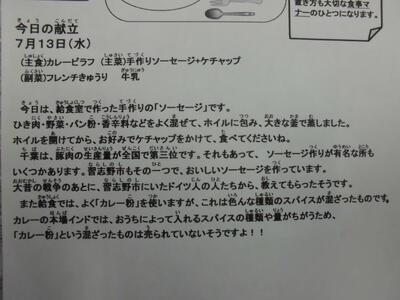 置き方も大切な食事マ
ナーのひとつになります。
今日の献立
7月13日(水)
(主食)カレーピラフ (主菜)手作りソーセージ+ケチャップ
(副菜)フレンチきゅうり 牛乳
今日は、給食室で作った手作りの「ソーセージ」です。
ひき肉・野菜・パン粉・香辛料などをよく混ぜて、ホイルに包み、大きな釜で蒸しました。
ホイルを開けてから、お好みでケチャップをかけて、食べてくださいね。
千葉は、豚肉の生産量が全国で第三位です。それもあって、ソーセージ作りが有名な所も
いくつかあります。習志野市もその一つで、おいしいソーセージを作っています。
大昔の戦争のあとに、習志野にいたドイツ人の人たちから、教えてもらったそうです。
また給食では、よく「カレー粉」を使いますが、これは色んな種類のスパイスが混ざったものです。
カレーの本場インドでは、おうちによって入れるスパイスの種類や量がちがうため、
「カレー粉」という混ざったものは売られていないそうですよ!!